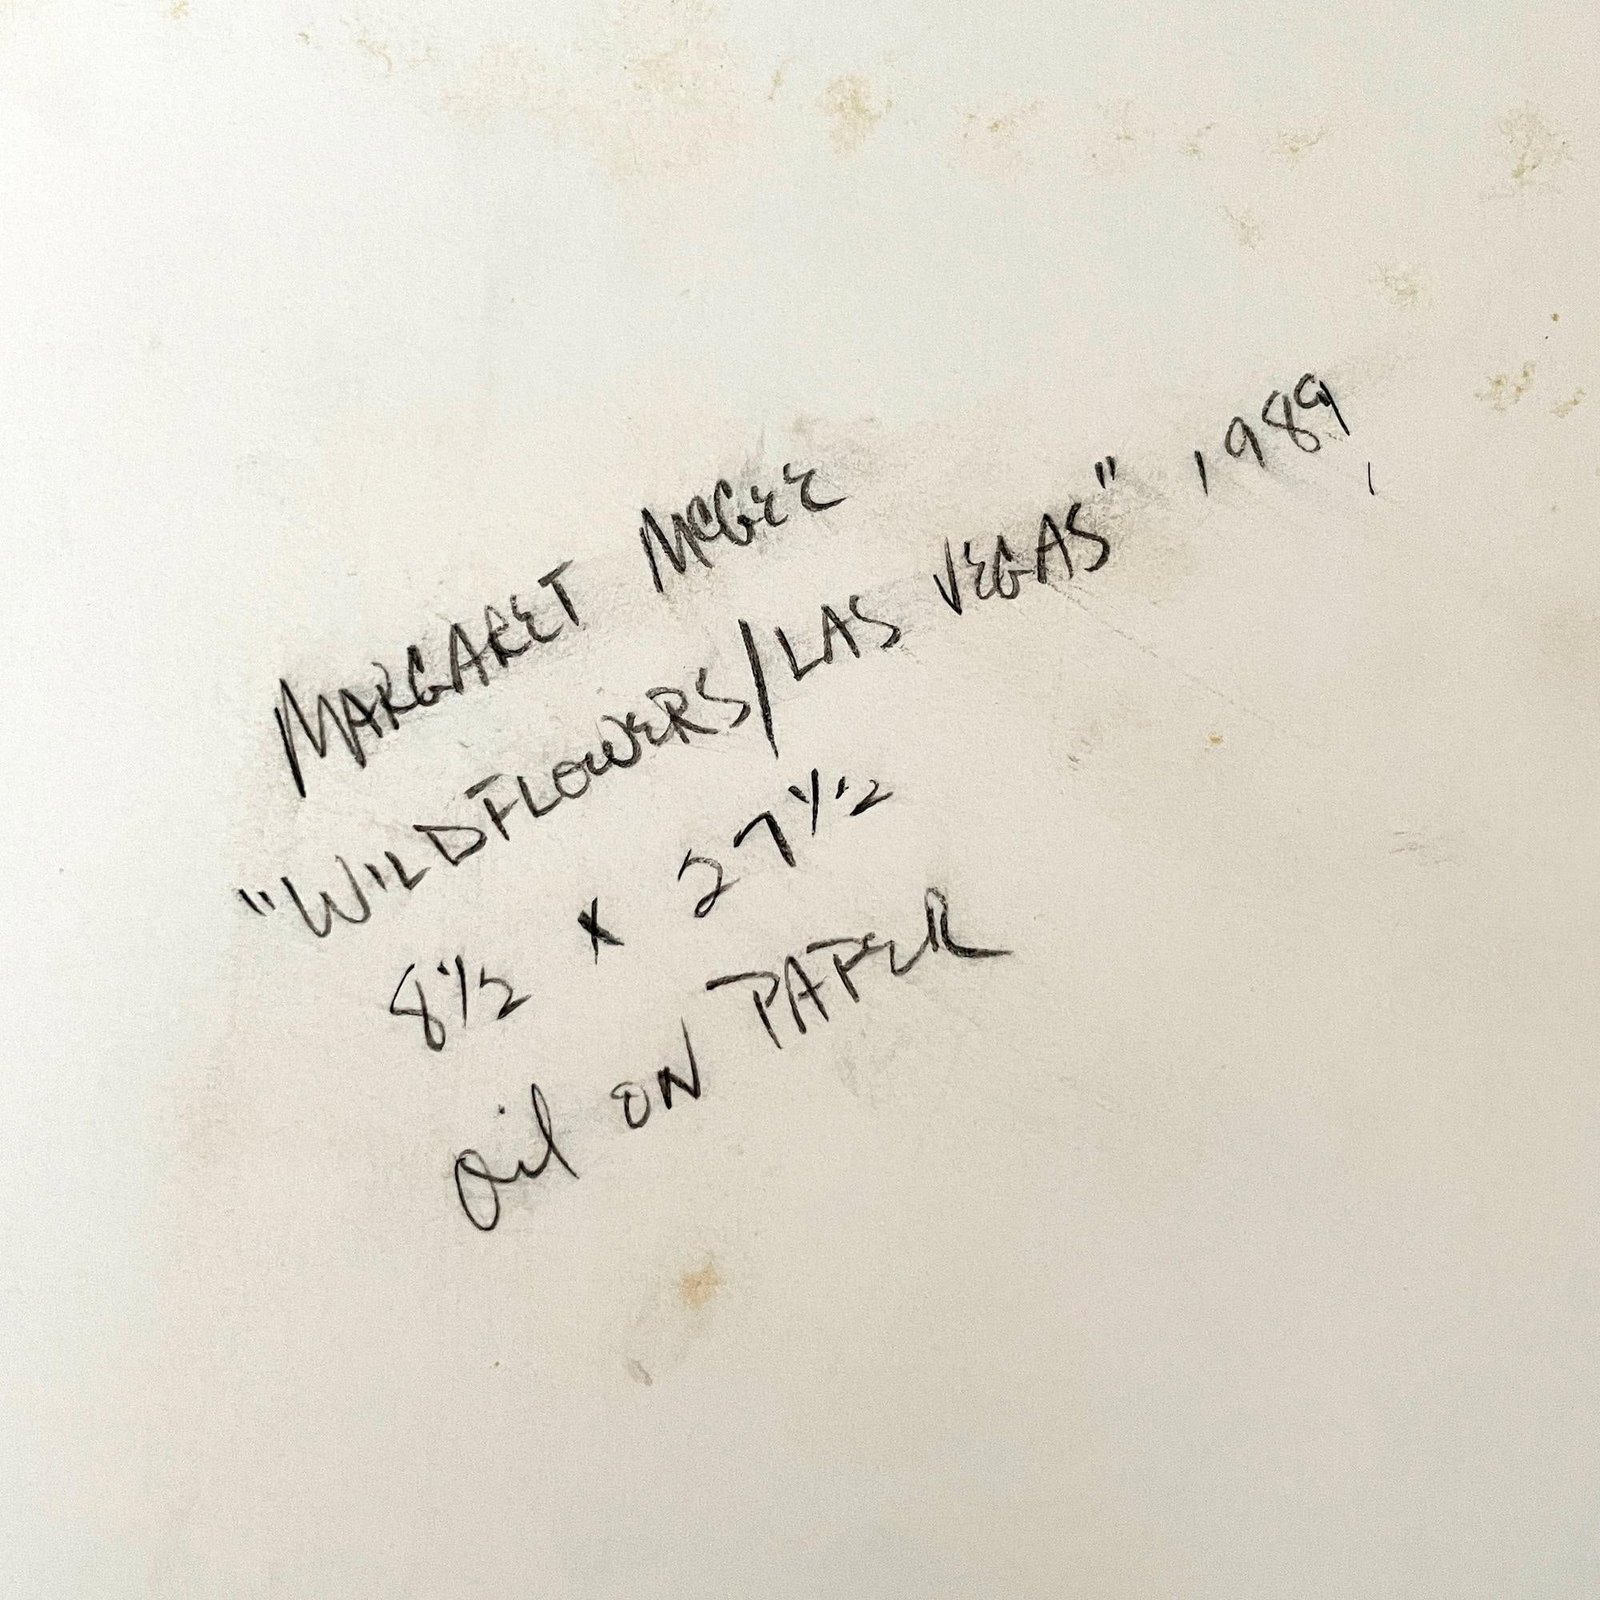 MARGARET McGEE
"WILDFLOWERS/LAS VEGAS" 1989,
8 1/2 x 27 1/2
Oil ON PAPER